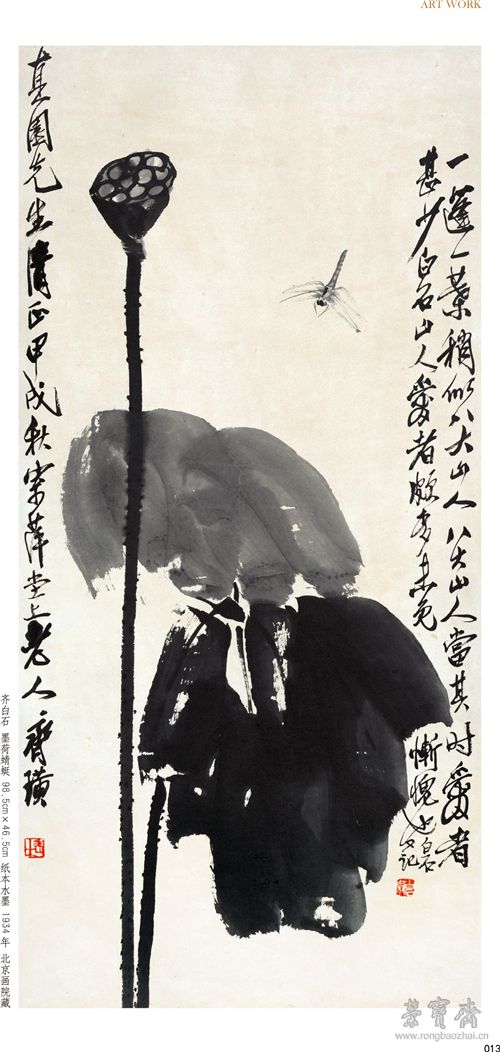 ART WORK
一蓬一叶稍似八大山人八大山人當其时愛者
甚少白石山人愛者頗多未免
慚愧
白石又記
真園先生清正甲戌秋寄萍堂上老人齊璜
齐白石 墨荷蜻蜓 98.5cm×46.5cm 纸本水墨 1934年 北京画院藏
榮寶齋
www.rongbaozhai.cn
013